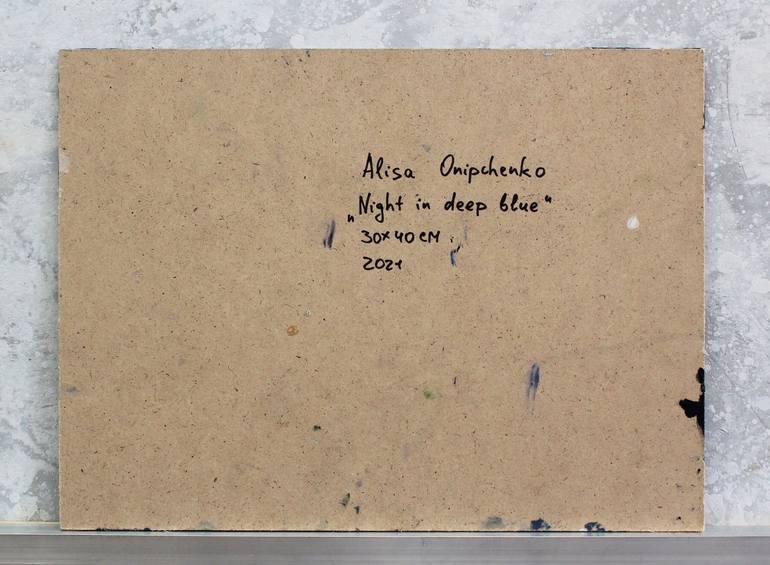 Alisa Onipchenko
„Night in deep blue"
30×40 см
2021